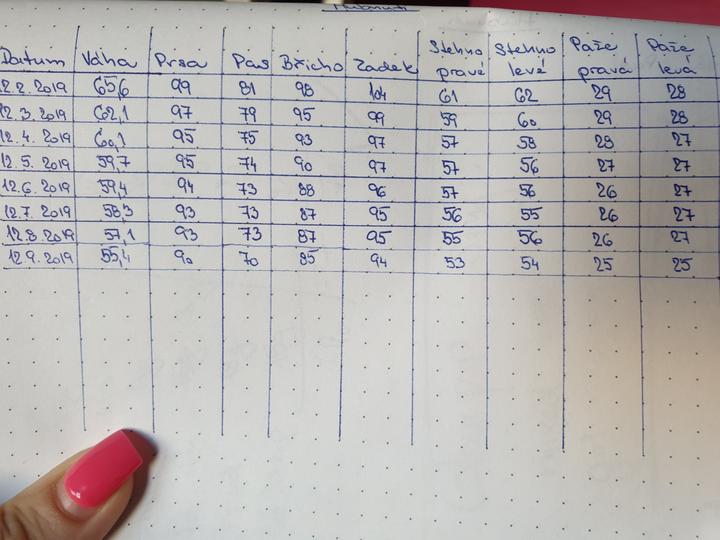 Hubnutí
Datum Váha Prsa Pas Břicho Zadek Stehno pravé Stehno levé Paže pravá Paže levá
12.2.2019 65,6 99 81 98 104 61 62 29 28
12.3.2019 62,1 97 79 95 99 59 60 29 28
12.4.2019 60,1 95 75 93 97 57 58 28 27
12.5.2019 59,7 95 74 90 97 57 56 27 27
12.6.2019 59,4 94 73 88 96 57 56 26 27
12.7.2019 58,3 93 73 87 95 56 55 26 27
12.8.2019 57,1 93 73 87 95 55 56 26 27
12.9.2019 55,4 90 70 85 94 53 54 25 25